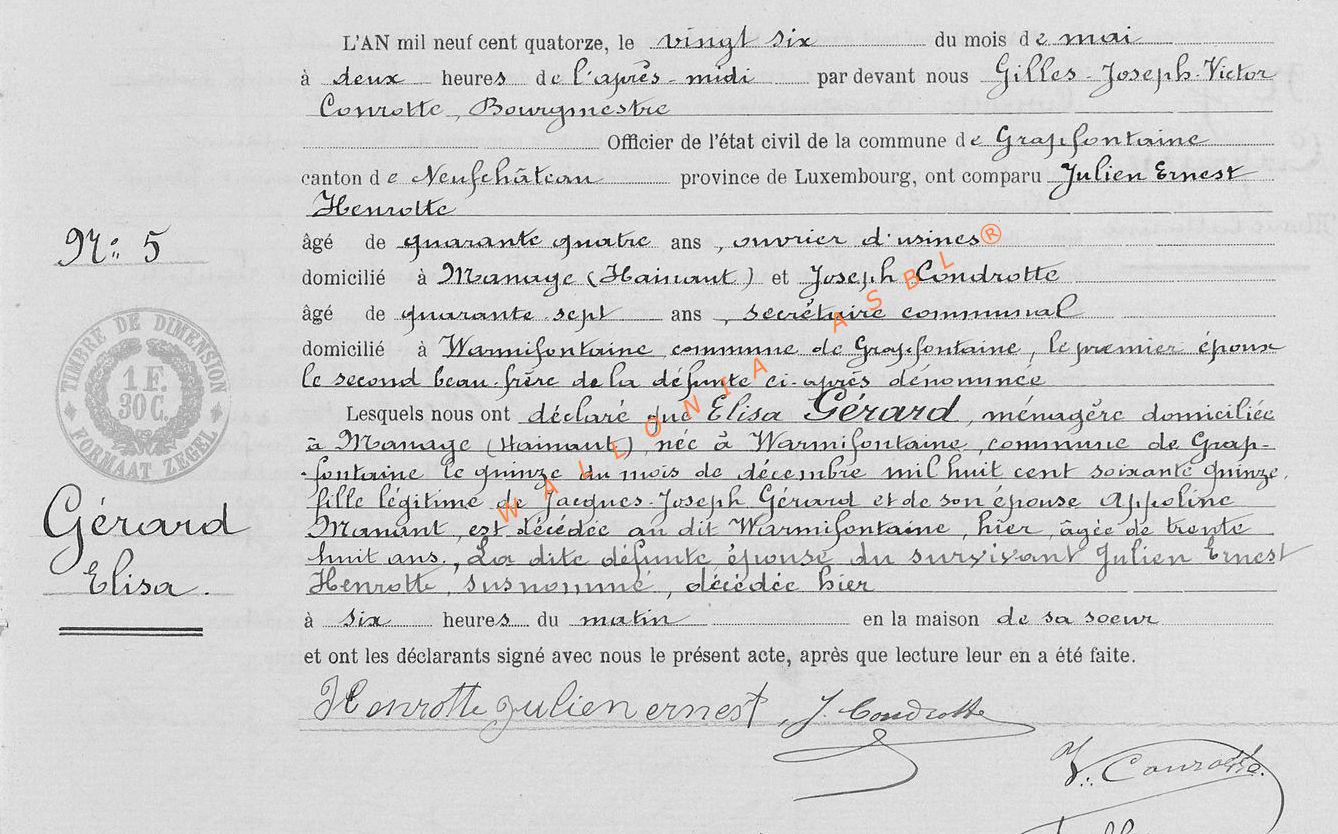 L'AN mil neuf cent quatorze, le vingt six du mois de mai
à deux heures de l'après-midi par devant nous Gilles-Joseph-Victor
Conrotte, Bourgmestre
Officier de l'état civil de la commune de Grapfontaine
canton de Neufchâteau province de Luxembourg, ont comparu Julien Ernest
Henrotte
Nr: 5
âgé de quarante quatre ans, ouvrier d'usines
domicilié à Manage (Hainaut) et Joseph Condrotte
âgé de quarante sept ans, secrétaire communal
domicilié à Warmifontaine commune de Grapfontaine, le premier époux
le second beau-frère de la défunte ci-après dénommée
TIMBRE DE DIMENSION
1 F.
30 C.
FORMAAT ZEGEL
Lesquels nous ont déclaré que Elisa Gérard, ménagère domiciliée
à Manage (Hainaut), née à Warmifontaine, commune de Grap-
-fontaine le quinze du mois de décembre mil huit cent soixante quinze,
fille légitime de Jacques-Joseph Gérard et de son épouse Appoline
Manant, est décédée au dit Warmifontaine, hier, âgée de trente
huit ans., La dite défunte épouse du survivant Julien Ernest
Henrotte, susnommé, décédée hier
Gérard
Elisa.
à six heures du matin en la maison de sa soeur
et ont les déclarants signé avec nous le présent acte, après que lecture leur en a été faite.
Henrotte julien ernest, J. Condrotte
V. Conrotte.
WALLONIA ASBL®